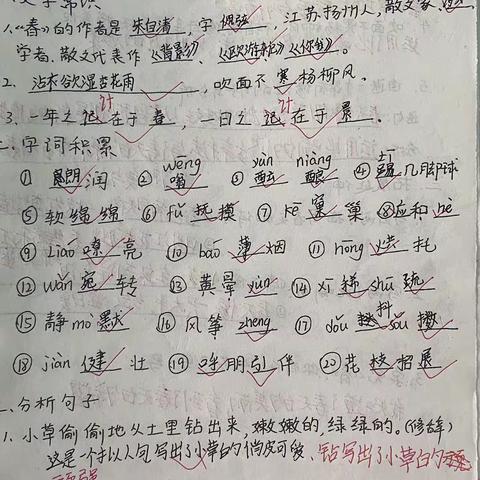 1.《春》的作者是 朱自清, 字 佩弦, 江苏扬州人, 散文家、
学者、散文代表作《背影》、《欧游杂记》《你我》。
2、沾衣欲湿杏花雨, 吹面不寒杨柳风。
计 计
3. 一年之 在于 春, 一日之 在于 晨。
二、字词积累
wēng yùn niàng tī
① 朗润 ② 嗡 ③ 酝 酿 ④ 踢几脚球
⑤ 软绵绵 ⑥ fǔ 抚摸 ⑦ kē 窠巢 ⑧应和 hè
⑨ liáo 嘹亮 ⑩ báo 薄烟 ⑪ hōng 烘托
⑫ wǎn 宛转 ⑬ 黄晕 yùn ⑭ xī 稀 shū 疏
抖
⑮ 静 mò 默 ⑯ 风筝 zheng ⑰ dǒu sǒu 擞
⑱ jiàn 健壮 ⑲ 呼朋引伴 ⑳ 花枝招展
三、分析句子
1、小草偷偷地从土里钻出来, 嫩嫩的, 绿绿的。
这是一个拟人句写出了小草的俏皮可爱、钻写出了小草的
顽强